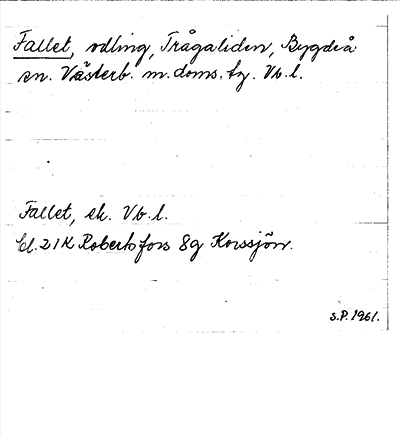 Fallet, odling, Trågaliden, Bygdeå
sn. Västerb. m. doms. tg. Vb. l.
Fallet, ek. Vb. l.
bl. 21K Robertsfors 8g Korssjön.
S.P. 1961.